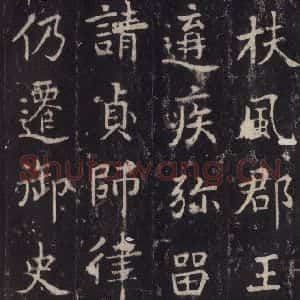 扶風郡王
遘疾弥留
請貞師律
仍遷御史
Shufawang.CN